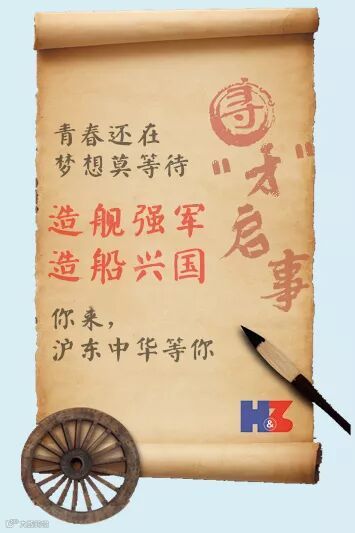 寻
“才”
启
事
青春还在
梦想莫等待
造舰强军
造船兴国
你来，
沪东中华等你
H&Z